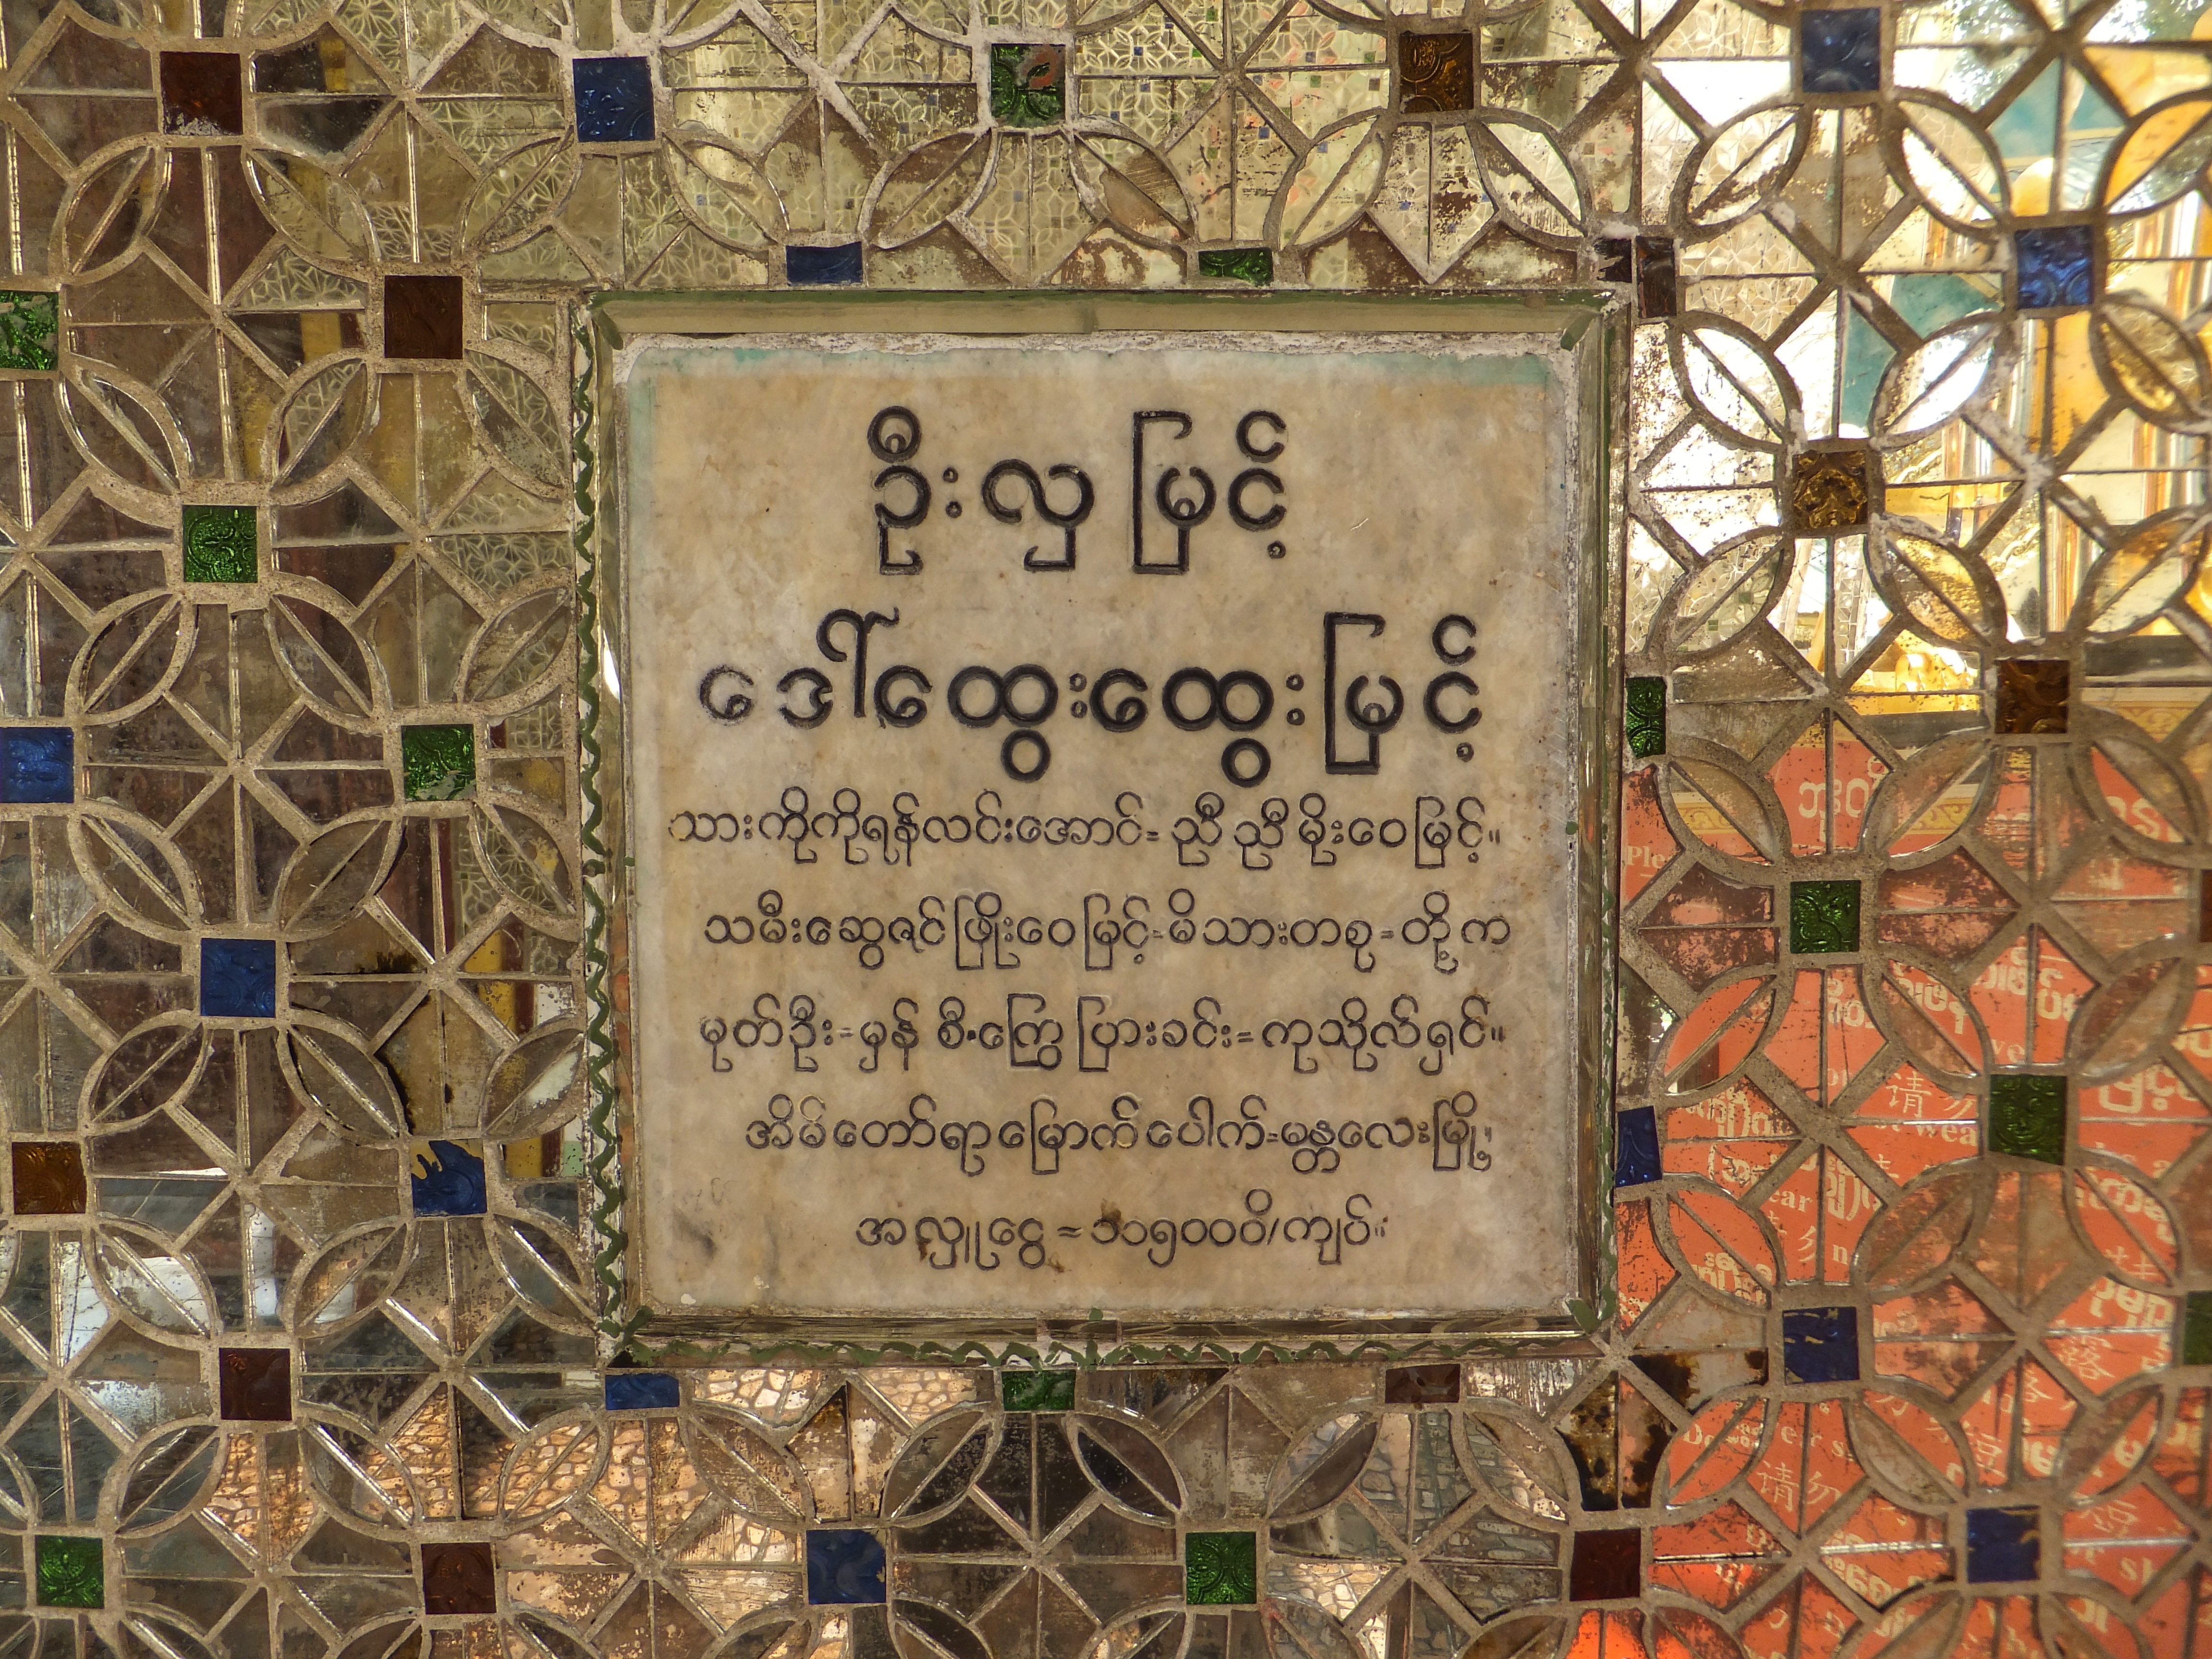 ဦးလှမြင့်
ဒေါ်ထွေးထွေးမြင့်
သားကိုကိုရန်လင်းအောင်=ညီညီမိုးဝေမြင့်။
သမီးဆွေဇင်ဖြိုးဝေမြင့်=မိသားတစု=တို့က
မုတ်ဦး=မှန်စီ•ကြွေပြားခင်း=ကုသိုလ်ရှင်။
အိမ်တော်ရာမြောက်ပေါက်=မန္တလေးမြို့၊
အလှူငွေ=၁၁၅၀၀၀ိ/ကျပ်။